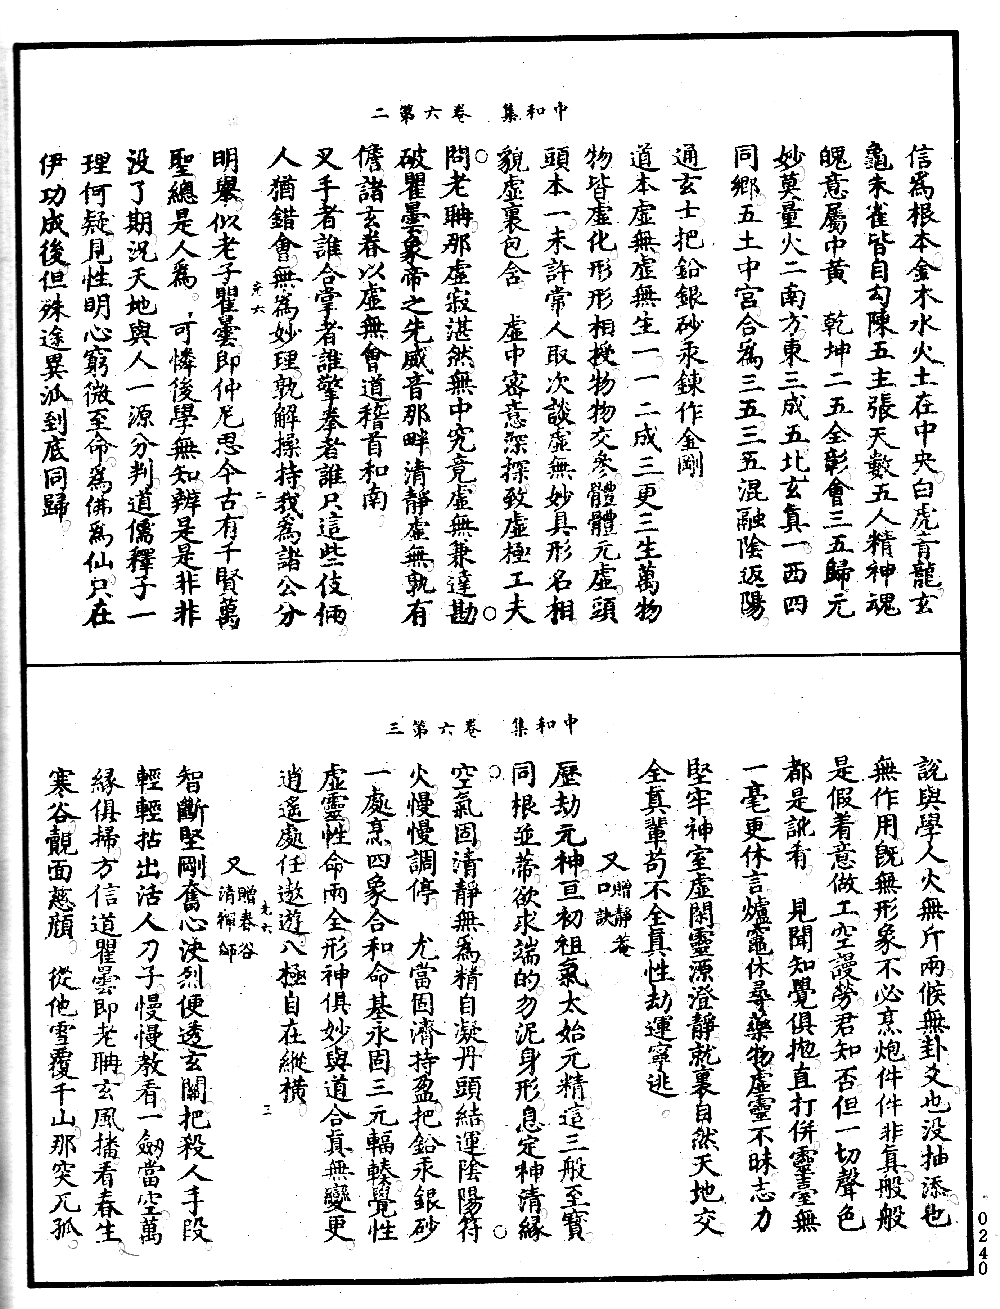 中和集　卷六第二
信爲根本金木水火土在中央白虎青龍玄
龜朱雀皆自勾陳五主張天數五人精神魂
魄意屬中黃　乾坤二五全彰會三五歸元
妙莫量火二南方東三成五北玄真一西四
同鄉五土中宮合爲三五三五混融陰返陽
通玄士把鉛銀砂汞鍊作金剛
道本虛無虛無生一一二成三更三生萬物
物皆虛化形形相授物物交參體體元虛頭
頭本一未許常人取次談虛無妙具形名相
貌虛裏包含　虛中密意深探致虛極工夫
問老聃那虛寂湛然無中究竟虛無兼達勘
破瞿曇象帝之先威音那畔清靜虛無孰有
儋諸玄眷以虛無會道稽首和南
叉手者誰合掌者誰擎拳者誰只這些伎倆
人猶錯會無爲妙理孰解操持我爲諸公分
光六　二
明舉似老子瞿曇即仲尼思今古有千賢萬
聖總是人爲　可憐後學無知辨是是非非
没了期況天地與人一源分判道儒釋子一
理何疑見性明心窮微至命爲佛爲仙只在
伊功成後但殊途異派到底同歸
中和集　卷六第三
說與學人火無斤兩候無卦爻也没抽添也
無作用旣無形象不必烹炮件件非真般般
是假着意做工空謾勞君知否但一切聲色
都是訛肴　見聞知覺俱抛直打併靈臺無
一毫更休言爐竈休尋藥物虛靈不昧志力
堅牢神室虛閑靈源澄靜就裏自然天地交
全真輩苟不全真性劫運寧逃
又贈靜菴口訣
歷劫元神亘初祖氣太始元精這三般至寶
同根並蒂欲求端的勿泥身形息定神清緣
空氣固清靜無爲精自凝丹頭結運陰陽符
火慢慢調停　尤當固濟持盈把鉛汞銀砂
一處烹四象合和命基永固三元輻輳覺性
虛靈性命兩全形神俱妙與道合真無變更
逍遙處任遨遊八極自在縱橫
光六　三
又贈春谷清禪師
智斷堅剛奮心決烈便透玄關把殺人手段
輕輕拈出活人刀子慢慢教看一劒當空萬
緣俱掃方信道瞿曇即老聃玄風播看春生
寒谷覿面慈顏　從他雪覆千山那突兀孤
0240